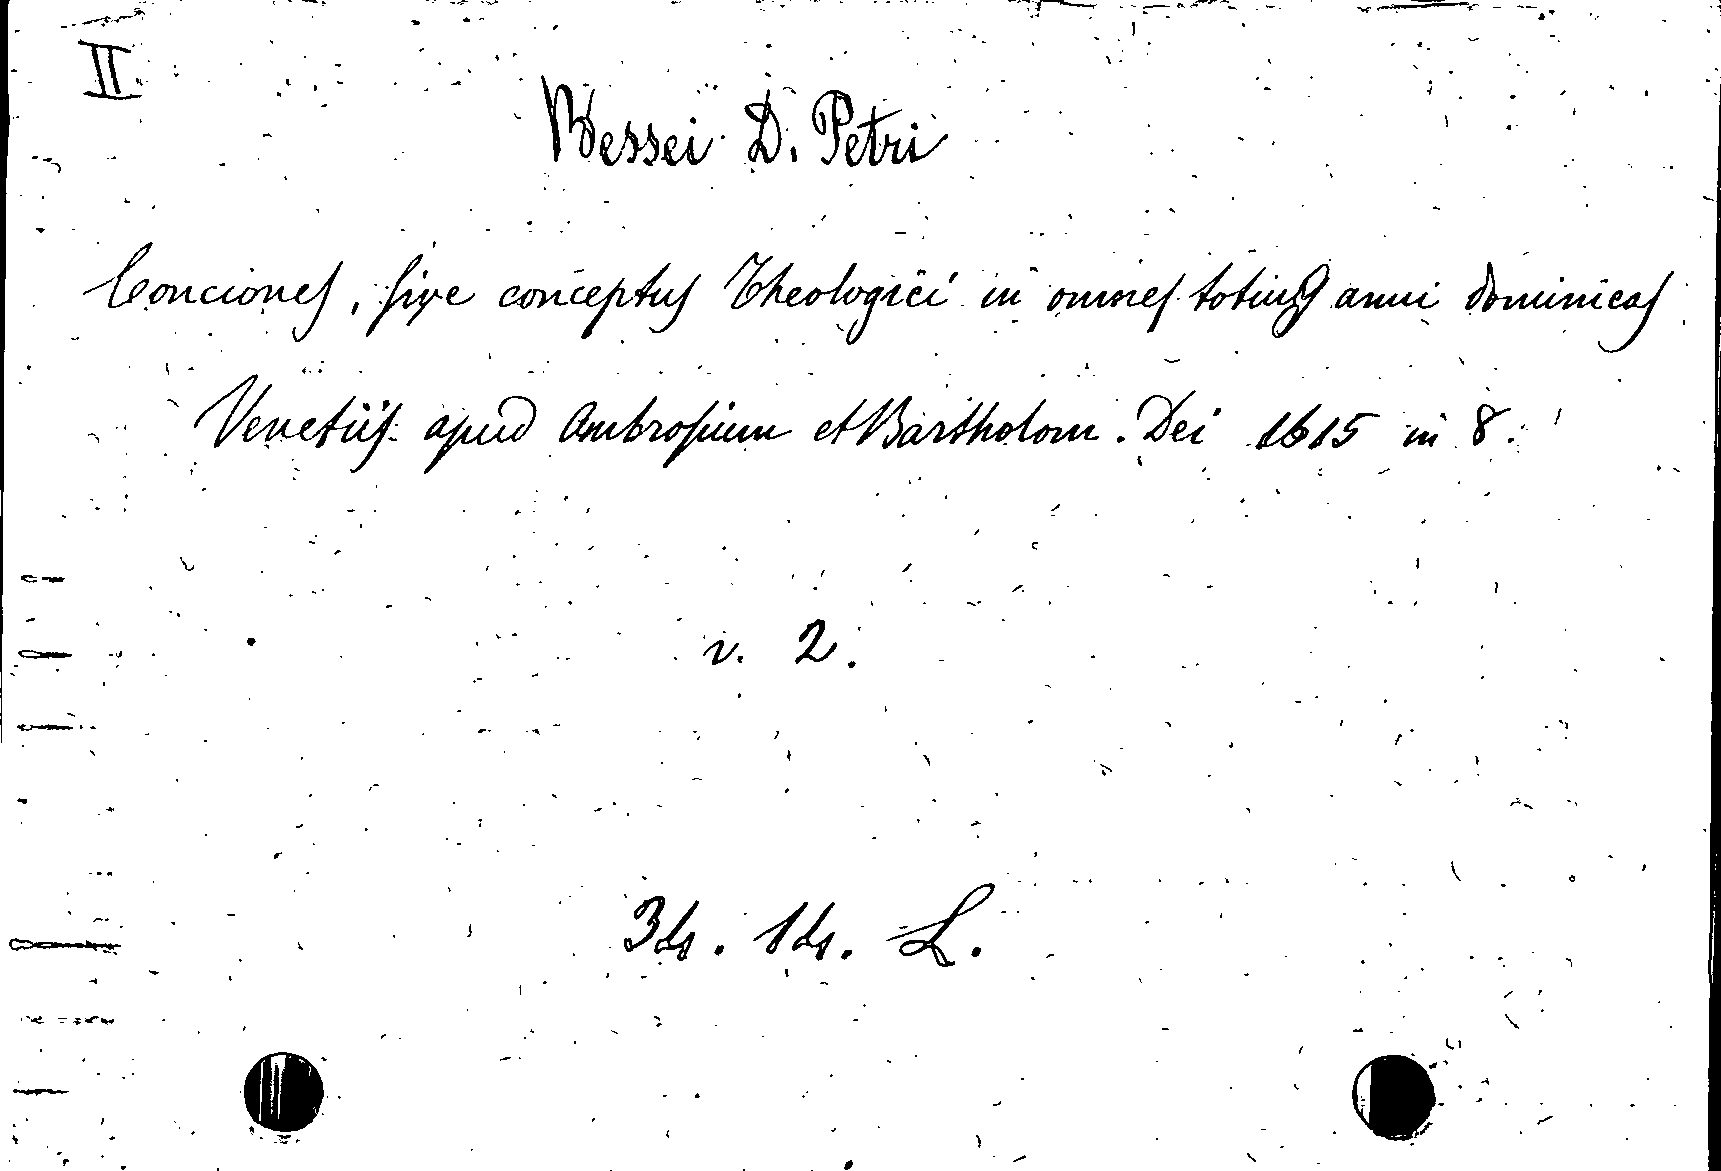 II.
Bessei D. Petri
Conciones, sive conceptus Theologici in omnes totius anni dominicas
Venetiis apud Ambrosium et Bartholom. Dei 1615 in 8.
v. 2.
3ds. 1ds. L.